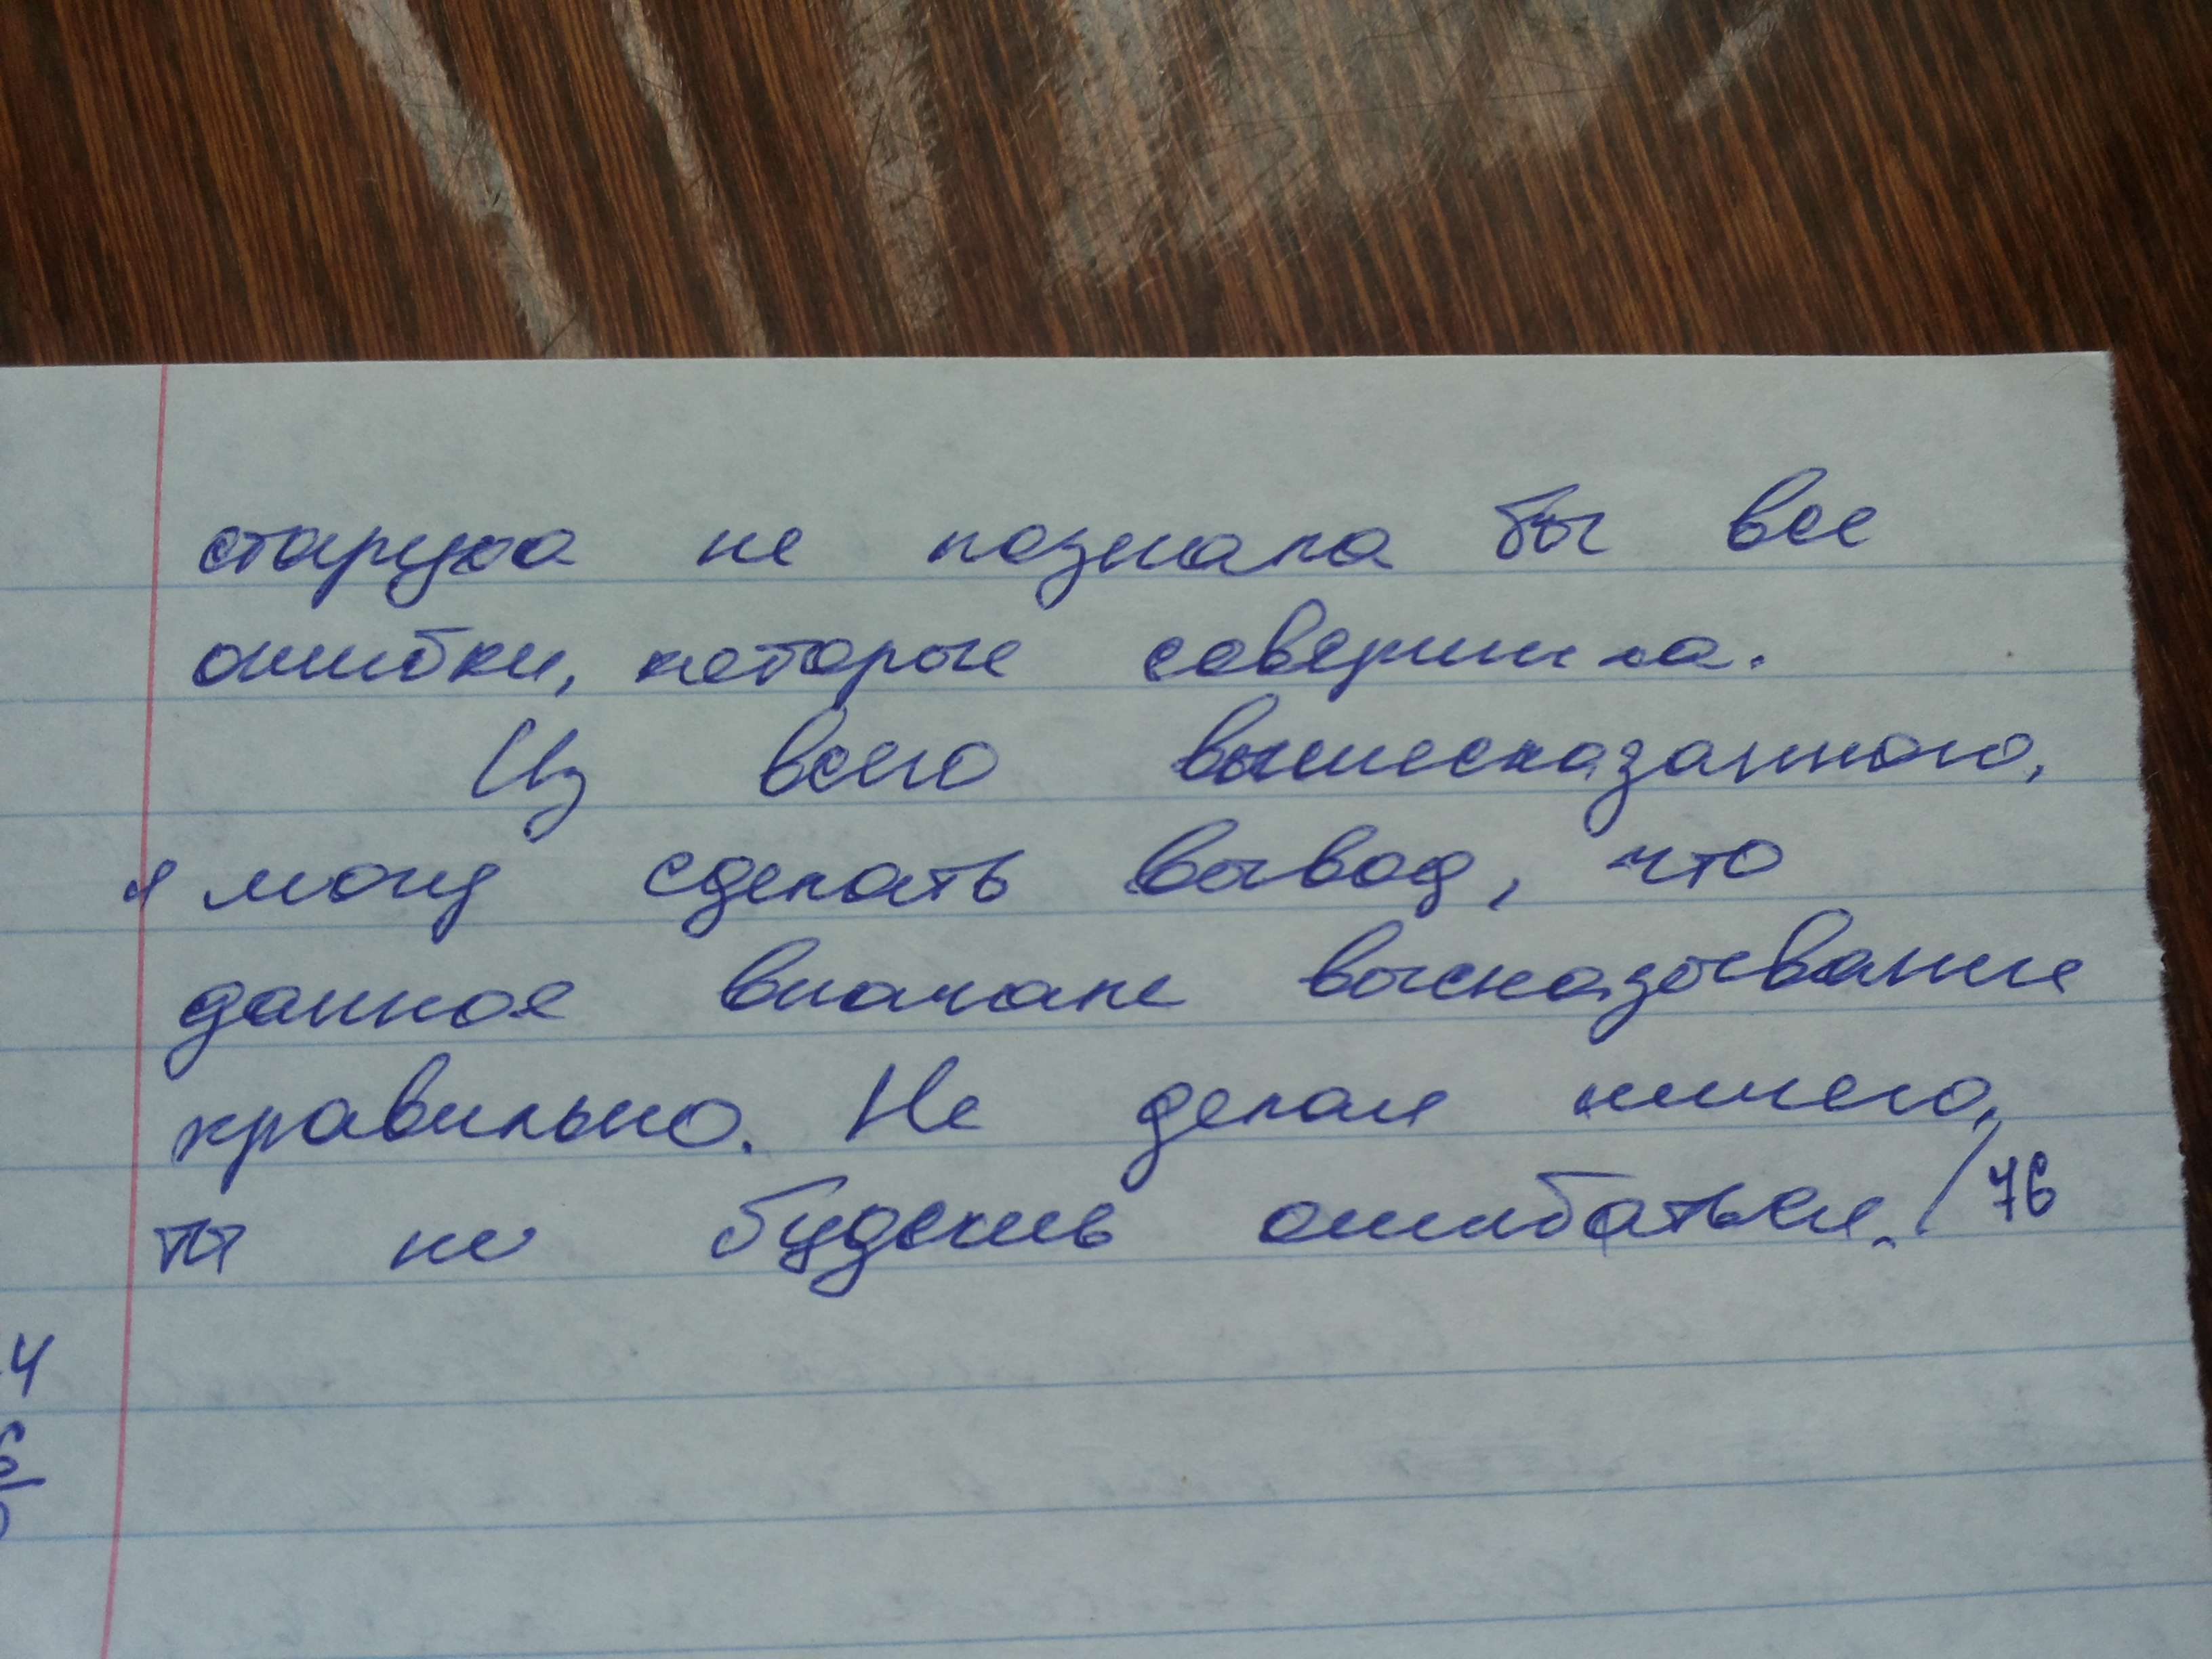 старуха не познала бы все
ошибки, которые совершила.
Из всего вышесказанного,
я могу сделать вывод, что
данное вначале высказывание
правильно. Не делая ничего,
ты не будешь ошибаться. / 76
4
6